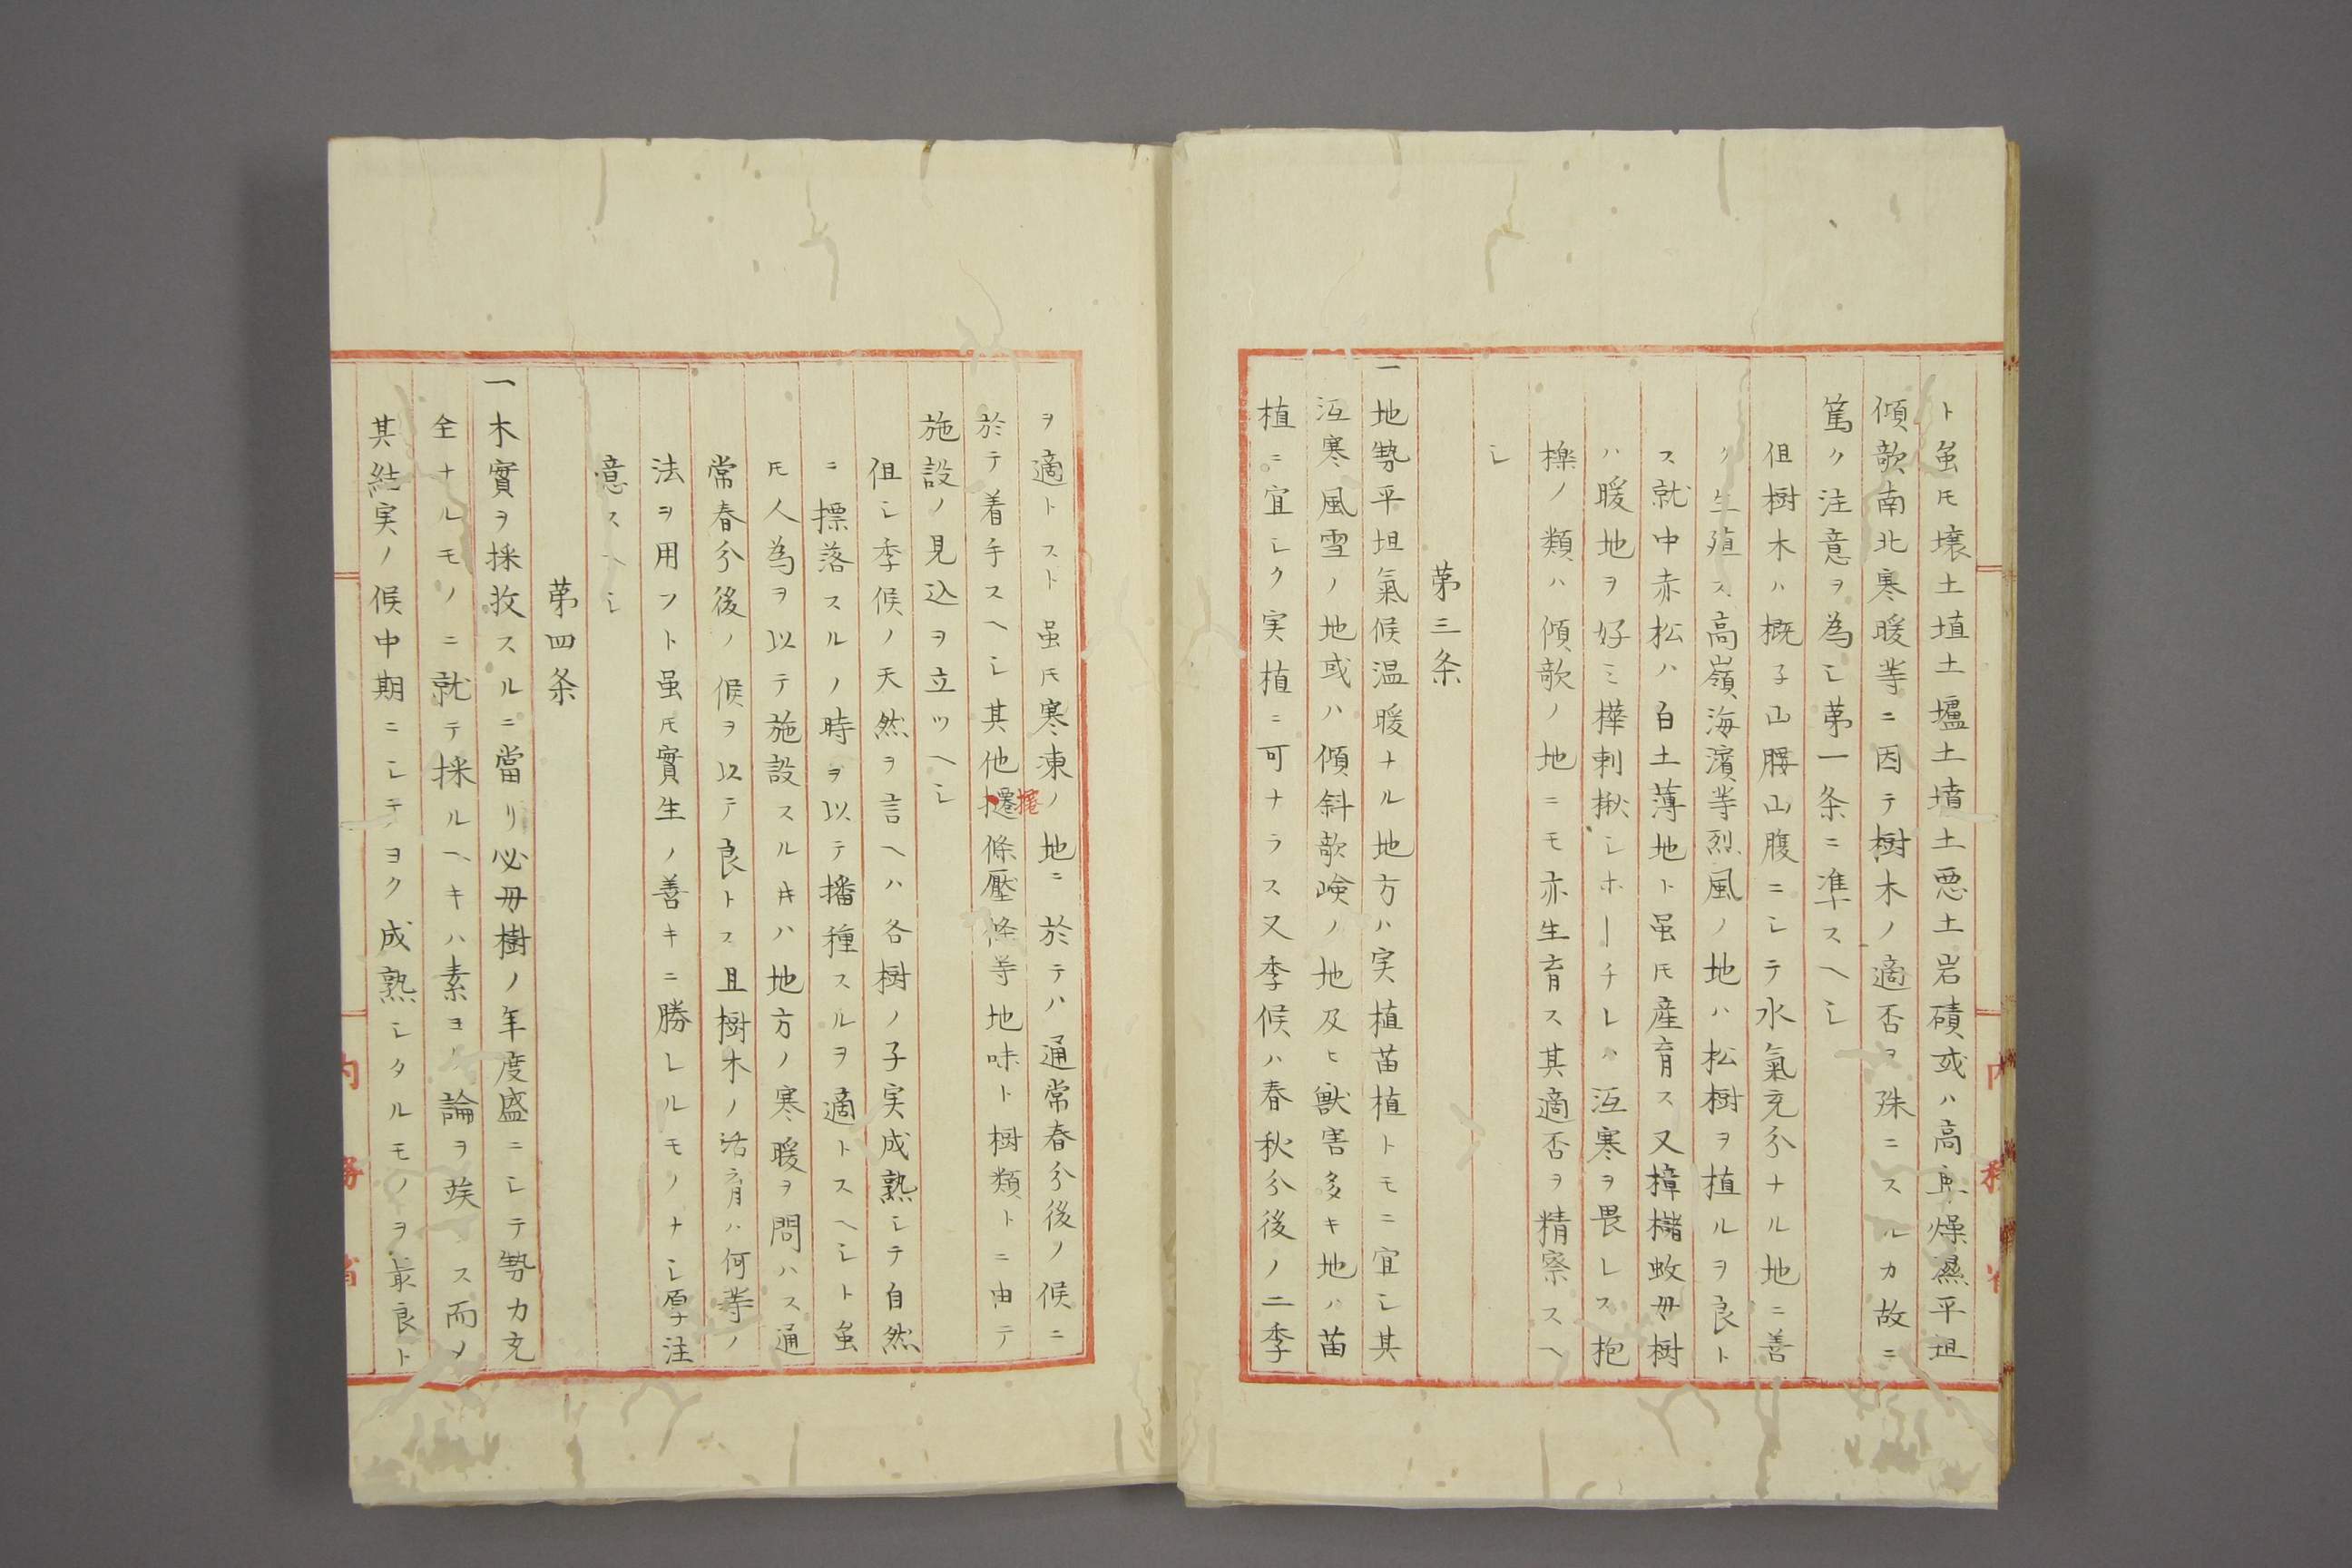 ト虽𪜈壌土埴土壚土墳土悪土岩磧或ハ高 燥濕平坦
傾欹南北寒暖等ニ因テ樹木ノ適否ヲ殊ニスルカ故ニ
篤ク注意ヲ為シ第一条ニ準スヘシ
但樹木ハ概子山腰山腹ニシテ水氣充分ナル地ニ善
ク生殖ス高嶺海濱等烈風ノ地ハ松樹ヲ植ルヲ良ト
ス就中赤松ハ白土薄地ト虽𪜈産育ス又樟櫧蚊母樹
ハ暖地ヲ好ミ樺刺楸シホーチレハ沍寒ヲ畏レス抱
櫟ノ類ハ傾欹ノ地ニモ亦生育ス其適否ヲ精察スヘ
シ
第三条
一地勢平坦氣候温暖ナル地方ハ実植苗植トモニ宜シ其
沍寒風雪ノ地或ハ傾斜欹嶮ノ地及ヒ獣害多キ地ハ苗
植ニ宜シク実植ニ可ナラス又季候ハ春秋分後ノ二季
ヲ適トスト虽𪜈寒凍ノ地ニ於テハ通常春分後ノ候ニ
於テ着手スヘシ其他 條壓條等地味ト樹類トニ由テ
施設ノ見込ヲ立ツヘシ
但シ季候ノ天然ヲ言ヘハ各樹ノ子実成熟シテ自然
ニ摽落スルノ時ヲ以テ播種スルヲ適トスヘシト虽
𪜈人為ヲ以テ施設スル井ハ地方ノ寒暖ヲ問ハス通
常春分後ノ候ヲ以テ良トス且樹木ノ活育ハ何等ノ
法ヲ用フト虽𪜈實生ノ善キニ勝レルモノナシ厚注
意スヘシ
第四条
一木實ヲ採收スルニ當リ必毋樹ノ年度盛ニシテ勢力充
全ナルモノニ就テ採ルヘキハ素ヨリ論ヲ竢ス而〆
其結実ノ候中期ニシテヨク成熟シタルモノヲ最良ト
内務省